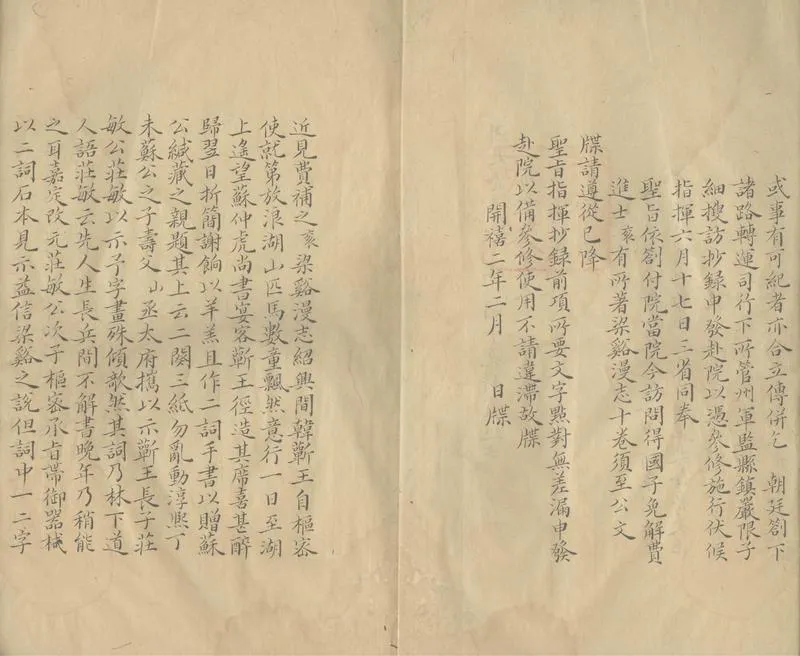 或事有可紀者亦合立傳併乞 朝廷劄下
諸路轉運司行下所管州軍監縣鎮嚴限子
細搜訪抄録申發赴院以憑參修施行伏候
指揮六月十七日三省同奉
聖旨依劄付院當院今訪問得國子免解費
進士袞有所著梁谿漫志十卷須至公文
牒請遵從已降
聖旨指揮抄録前項所要文字點對無差漏申發
赴院以備參修使用不請違滯故牒
開禧二年二月 日牒
近見費補之袞梁谿漫志紹興間韓蘄王自樞密
使就第放浪湖山匹馬數童飄然意行一日至湖
上遙望蘇仲虎尚書宴客蘄王徑造其席喜甚醉
歸翌日折簡謝餉以羊羔且作二詞手書以贈蘇
公緘藏之親題其上云二闋三紙勿亂動淳熙丁
未蘇公之子壽父山丞太府攜以示蘄王長子莊
敏公莊敏以示予字畫殊傾欹然其詞乃林下道
人語莊敏云先人生長兵間不解書晚年乃稍能
之耳嘉定改元莊敏公次子樞密承旨帶御器械
以二詞石本見示益信梁谿之說但詞中一二字